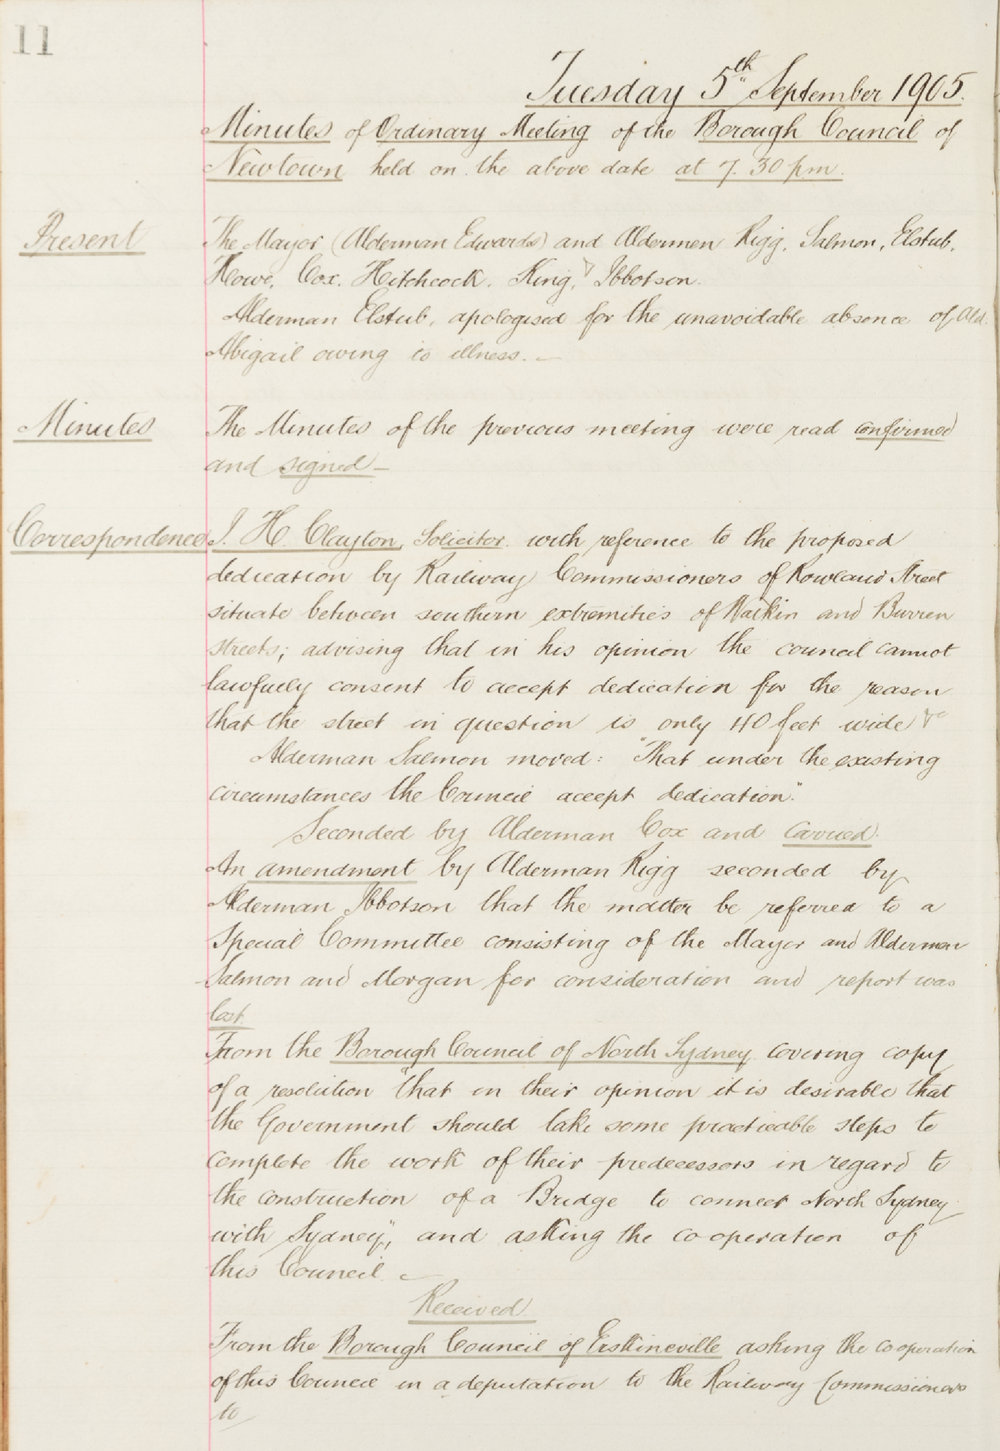 11
Tuesday 5th September 1905.
Minutes of Ordinary Meeting of the Borough Council of
Newtown held on the above date at 7.30 pm.
Present
The Mayor (Alderman Edwards) and Aldermen Rigg, Salmon, Elstub,
Howe, Cox, Hitchcock, King, Ibbotson.
Alderman Elstub, apologised for the unavoidable absence of Ald.
Abigail owing to illness. —
Minutes
The Minutes of the previous meeting were read confirmed
and signed —
Correspondence
J. H. Clayton, Solicitor. with reference to the proposed
dedication by Railway Commissioners of Rowland Street
situate between southern extremities of Watkin and Burren
streets; advising that in his opinion the council cannot
lawfully consent to accept dedication for the reason
that the street in question is only 40 feet wide &c
Alderman Salmon moved: "That under the existing
circumstances the Council accept dedication."
Seconded by Alderman Cox and Carried.
An amendment by Alderman Rigg seconded by
Alderman Ibbotson that the matter be referred to a
Special Committee consisting of the Mayor and Aldermen
Salmon and Morgan for consideration and report was
lost
From the Borough Council of North Sydney covering copy
of a resolution "that in their opinion it is desirable that
the Government should take some practicable steps to
complete the work of their predecessors in regard to
the construction of a Bridge to connect North Sydney
with Sydney", and asking the co-operation of
this Council. —
Received
From the Borough Council of Erskineville asking the cooperation
of this Council in a deputation to the Railway Commissioners
to